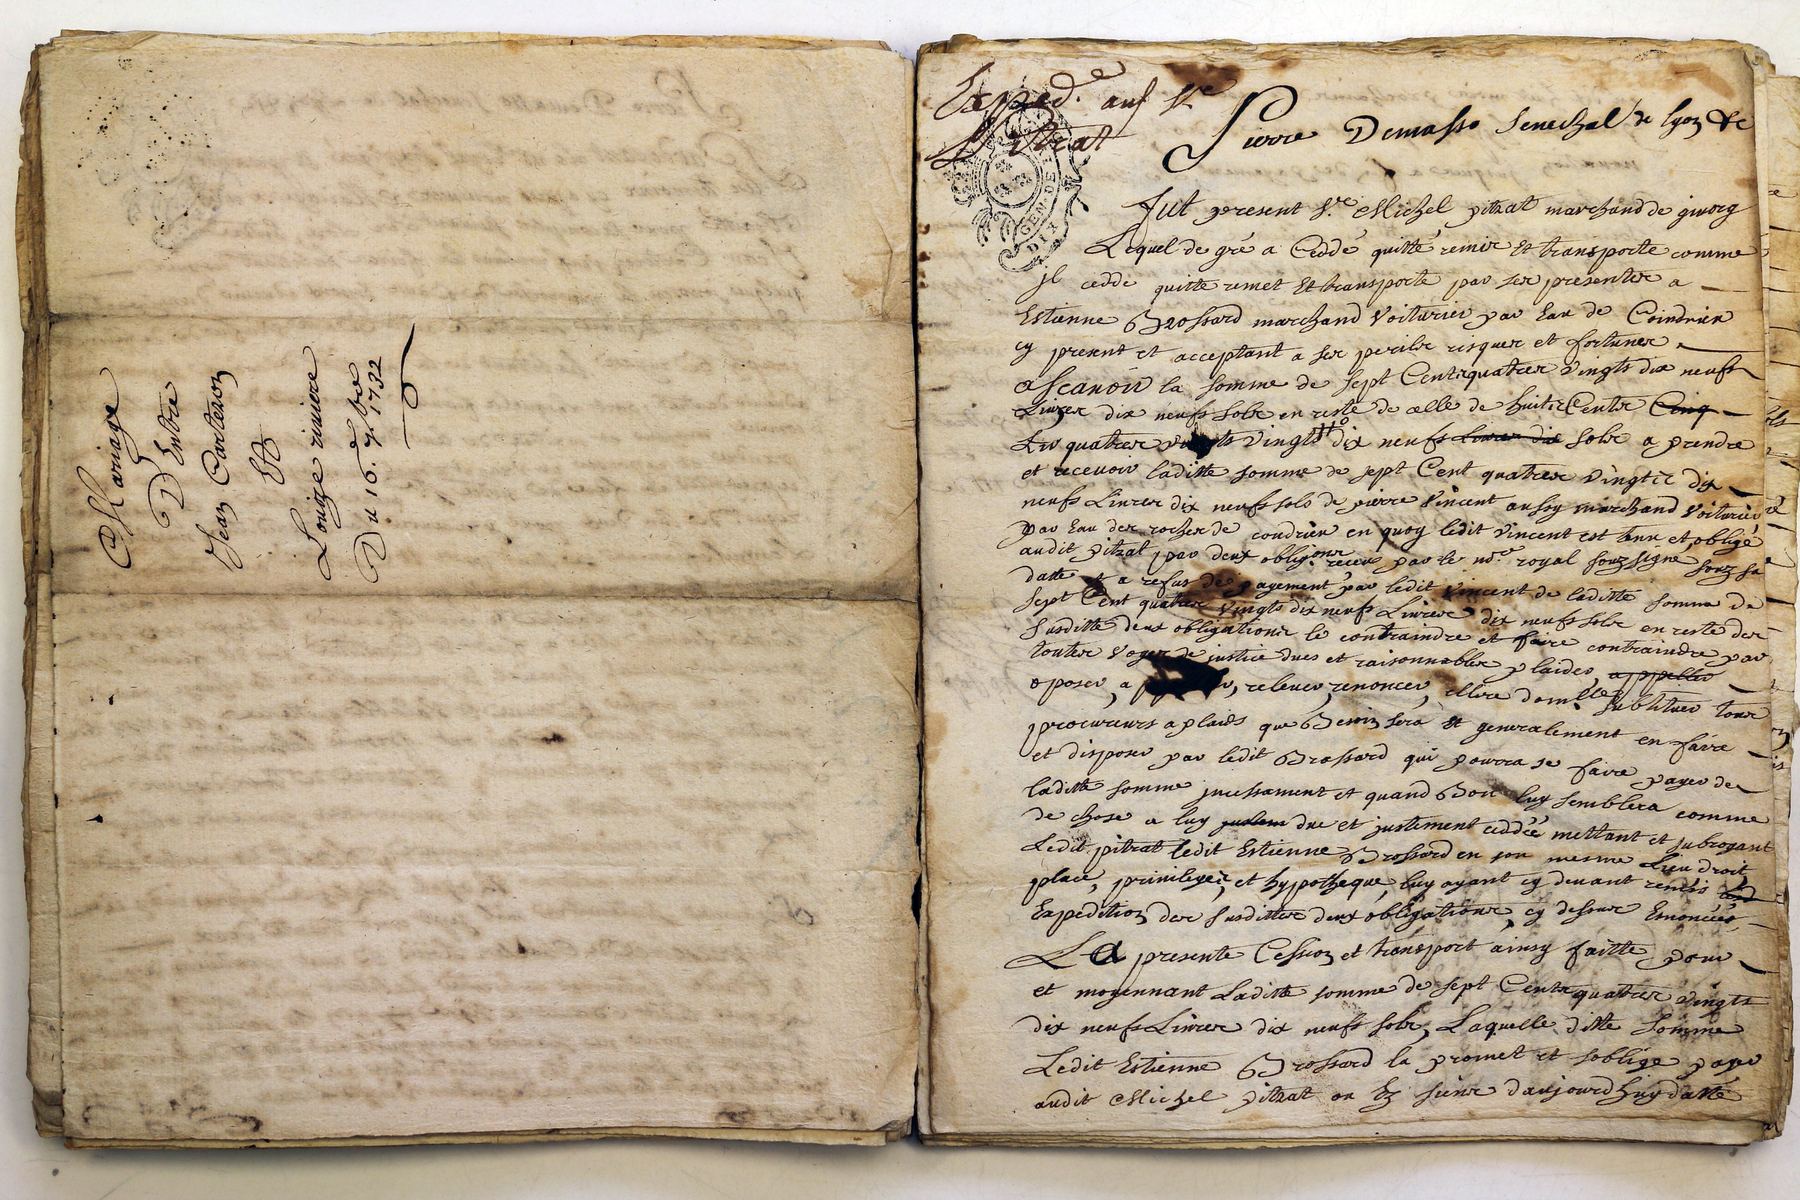 Mariage
D'Entre
Jean Carteron
Et
Louize riviere
Du 16.e 7.bre 1732
Exped.e au Sr
Pitrat
GEN. DE
DIX
Pierre Demasso Senechal de lyon &c
Fut present Sr. Michel pitrat marchand de givorg
Lequel de gré a Ceddé quitté remis Et transporte comme
jl cedde quitte remet Et transporte par ses presentes a
Estienne Brossard marchand Voiturier par Eau de Coindrieu
cy present et acceptant a ses perils risques et fortunes
ascauoir la somme de sept Cents quatres Vingts dix neufs
Livres dix neufs sols en reste de celle de huit Cents Cinq
quatres vingts dix neufs Livres dix sols a prendre
et receuoir laditte somme de sept Cent quatres Vingts dix
neufs Livres dix neufs sols de pierre Vincent aussy marchand Voiturier
par Eau des roches de condrieu en quoy ledit Vincent est tenu et obligé
audit pitrat par deux oblig.ons receues par le no.re royal souzsigné souz sa
datte et a refus de payement par ledit Vincent de laditte somme de
sept Cent quatres Vingts dix neufs Livres dix neufs sols en reste des
susditte deux obligations le contraindre et faire contraindre par
toutes voyes de justice dues et raisonnables plaider, appeller
oposer, a, relever, renoncer, ellire domlle substituer tous
procureurs a plaids que Besoin sera Et generalement en faire
et disposer par ledit Brossard qui pourra se faire payer de
laditte somme jncessament et quand Bon luy semblera comme
de chose a luy due et justement ceddée mettant et subrogant
Ledit pitrat ledit Estienne Brossard en son mesme Lieu droit
place, privileges, et hypotheque, luy ayant cy devant remis
Expedition des susdittes deux obligations, cy dessus Enoncées,
La presente Cession et transport ainsy faitte pour
et moyennant Laditte somme de sept Cents quatres Vingts
dix neufs Livres dix neufs sols, Laquelle ditte Somme
Ledit Estienne Brossard la promet et soblige payer
audit Michel pitrat an Et jours daujourdhuy datté